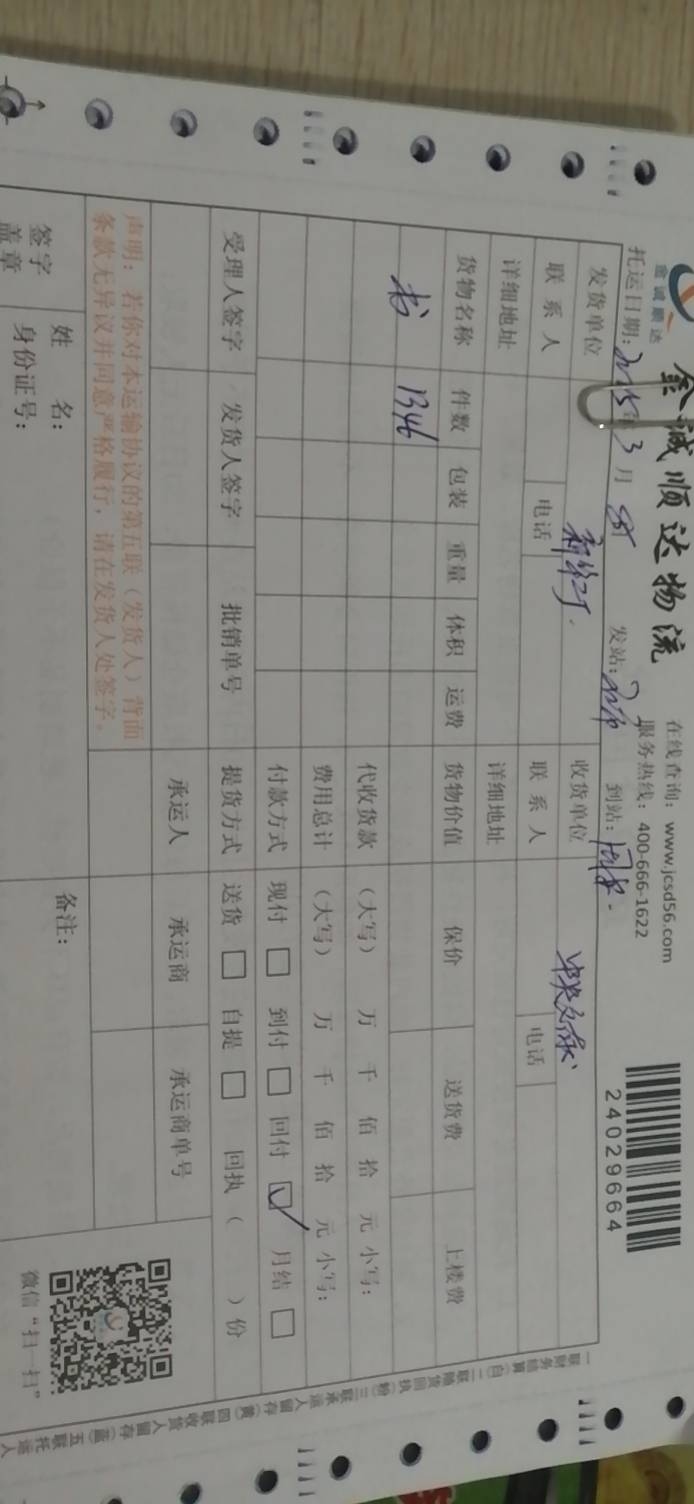 金诚顺达
金誠顺达物流
在线查询：www.jcsd56.com
服务热线：400-666-1622
24029664
托运日期：2025年3月 发站： 到站：
发货单位 收货单位
联系人 电话 联系人 电话
详细地址 详细地址
货物名称 件数 包装 重量 体积 运费 货物价值 保价 送货费 上楼费
书 1346
代收货款 （大写） 万 仟 佰 拾 元 小写：
费用总计 （大写） 万 仟 佰 拾 元 小写：
付款方式 现付 □ 到付 □ 回付 ☑ 月结 □
受理人签字 发货人签字 批销单号 提货方式 送货 □ 自提 □ 回执（ ）份
承运人 承运商 承运商单号
声明：若你对本运输协议的第五联（发货人）背面
条款无异议并同意严格履行，请在发货人处签字。
签字
盖章
姓 名：
身份证号：
备注：
微信“扫一扫”
一联财务结算(白) 二联随货回执(粉) 三联承运人留存(黄) 四联收货人留存(蓝) 五联托运人